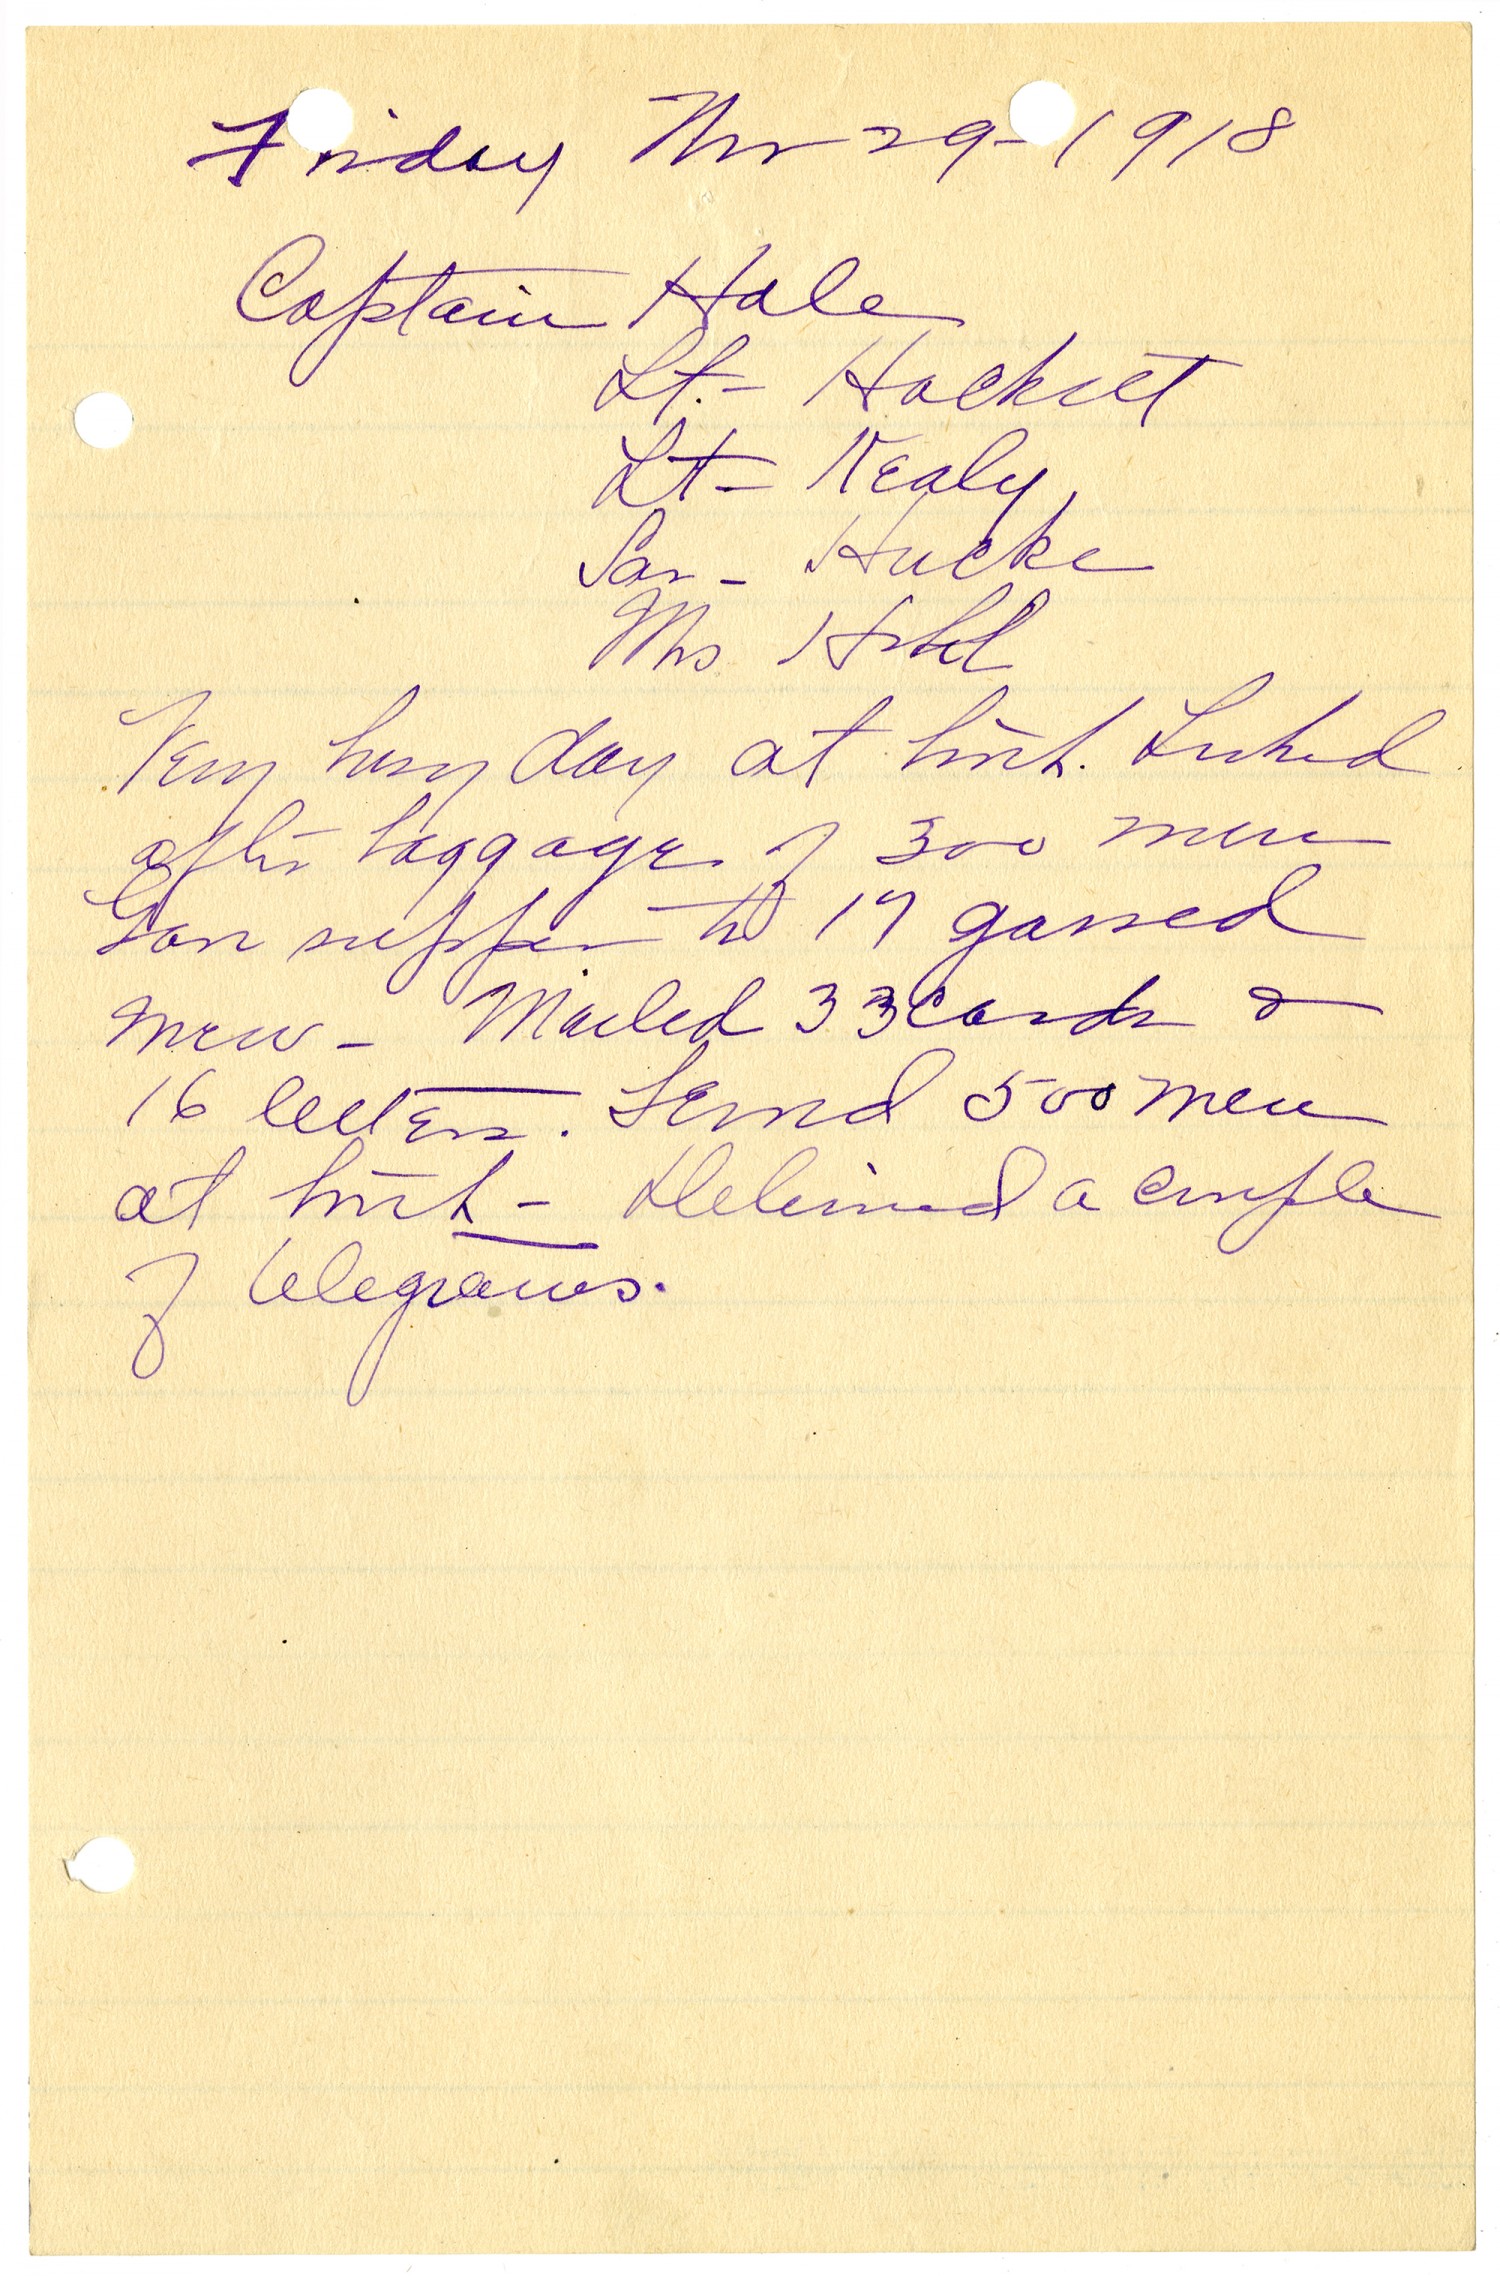 Friday Nov 29-1918
Captain Hale
Lt.- Hackett
Lt- Kealy
Sar- Hucke
Mrs
Very busy day at hut. Looked
after baggage of 300 men
Gave supper to 17 gassed
men - Mailed 33 cards &
16 letters. Served 500 men
at hut - Delivered a couple
of telegrams.